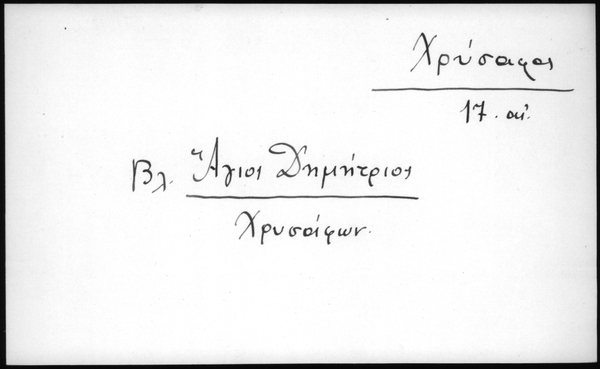 Χρύσαφος
17. αἰ.
Βλ. Ἅγιος Δημήτριος
Χρυσάφων.